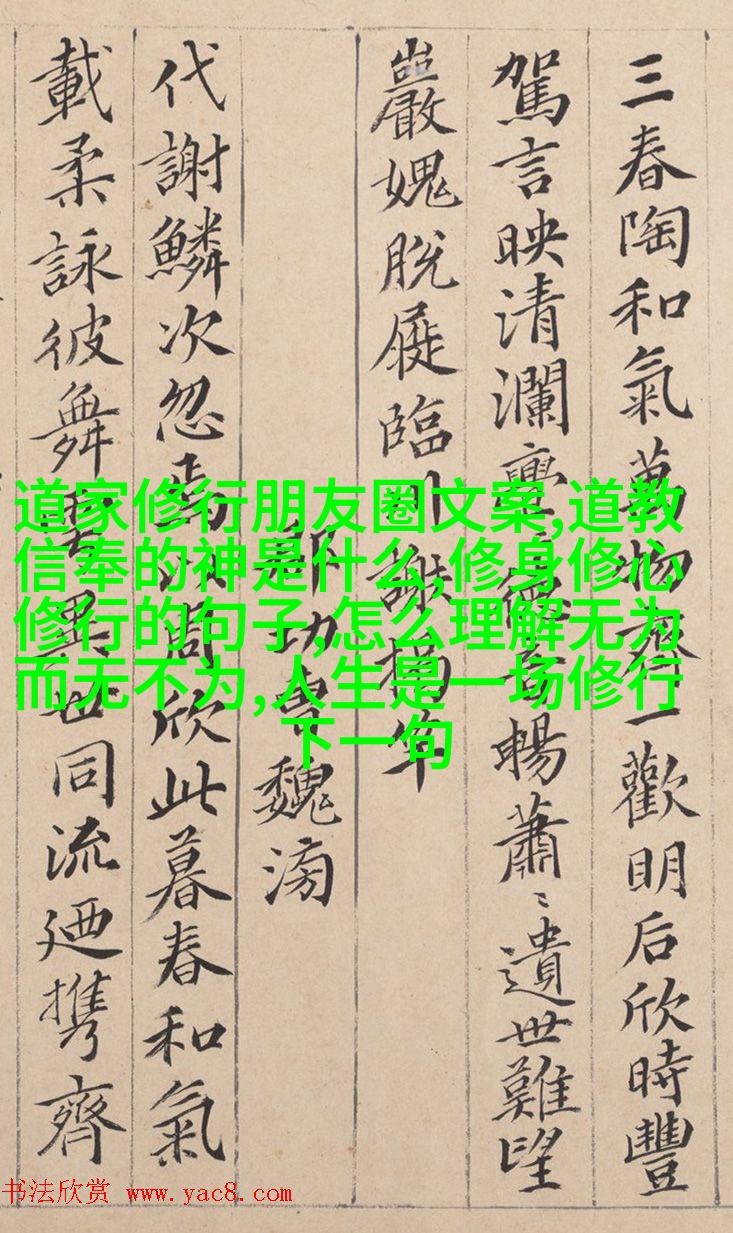 三春陶和氣萬物齊一歡明后欣時豐
駕言映清瀾亹〻德音暢蕭〻遺世難望
巖媿脫屣臨川謝揭竿
郡功曹魏滂
代謝鱗次忽焉以周欣此暮春和氣
載柔詠彼舞雩異世同流廼携齊
道家修行朋友圈文案,道教
信奉的神是什么,修身修心
修行的句子,怎么理解无为
而无不为,人生是一场修行
下一句
书法欣赏 www.yac8.com